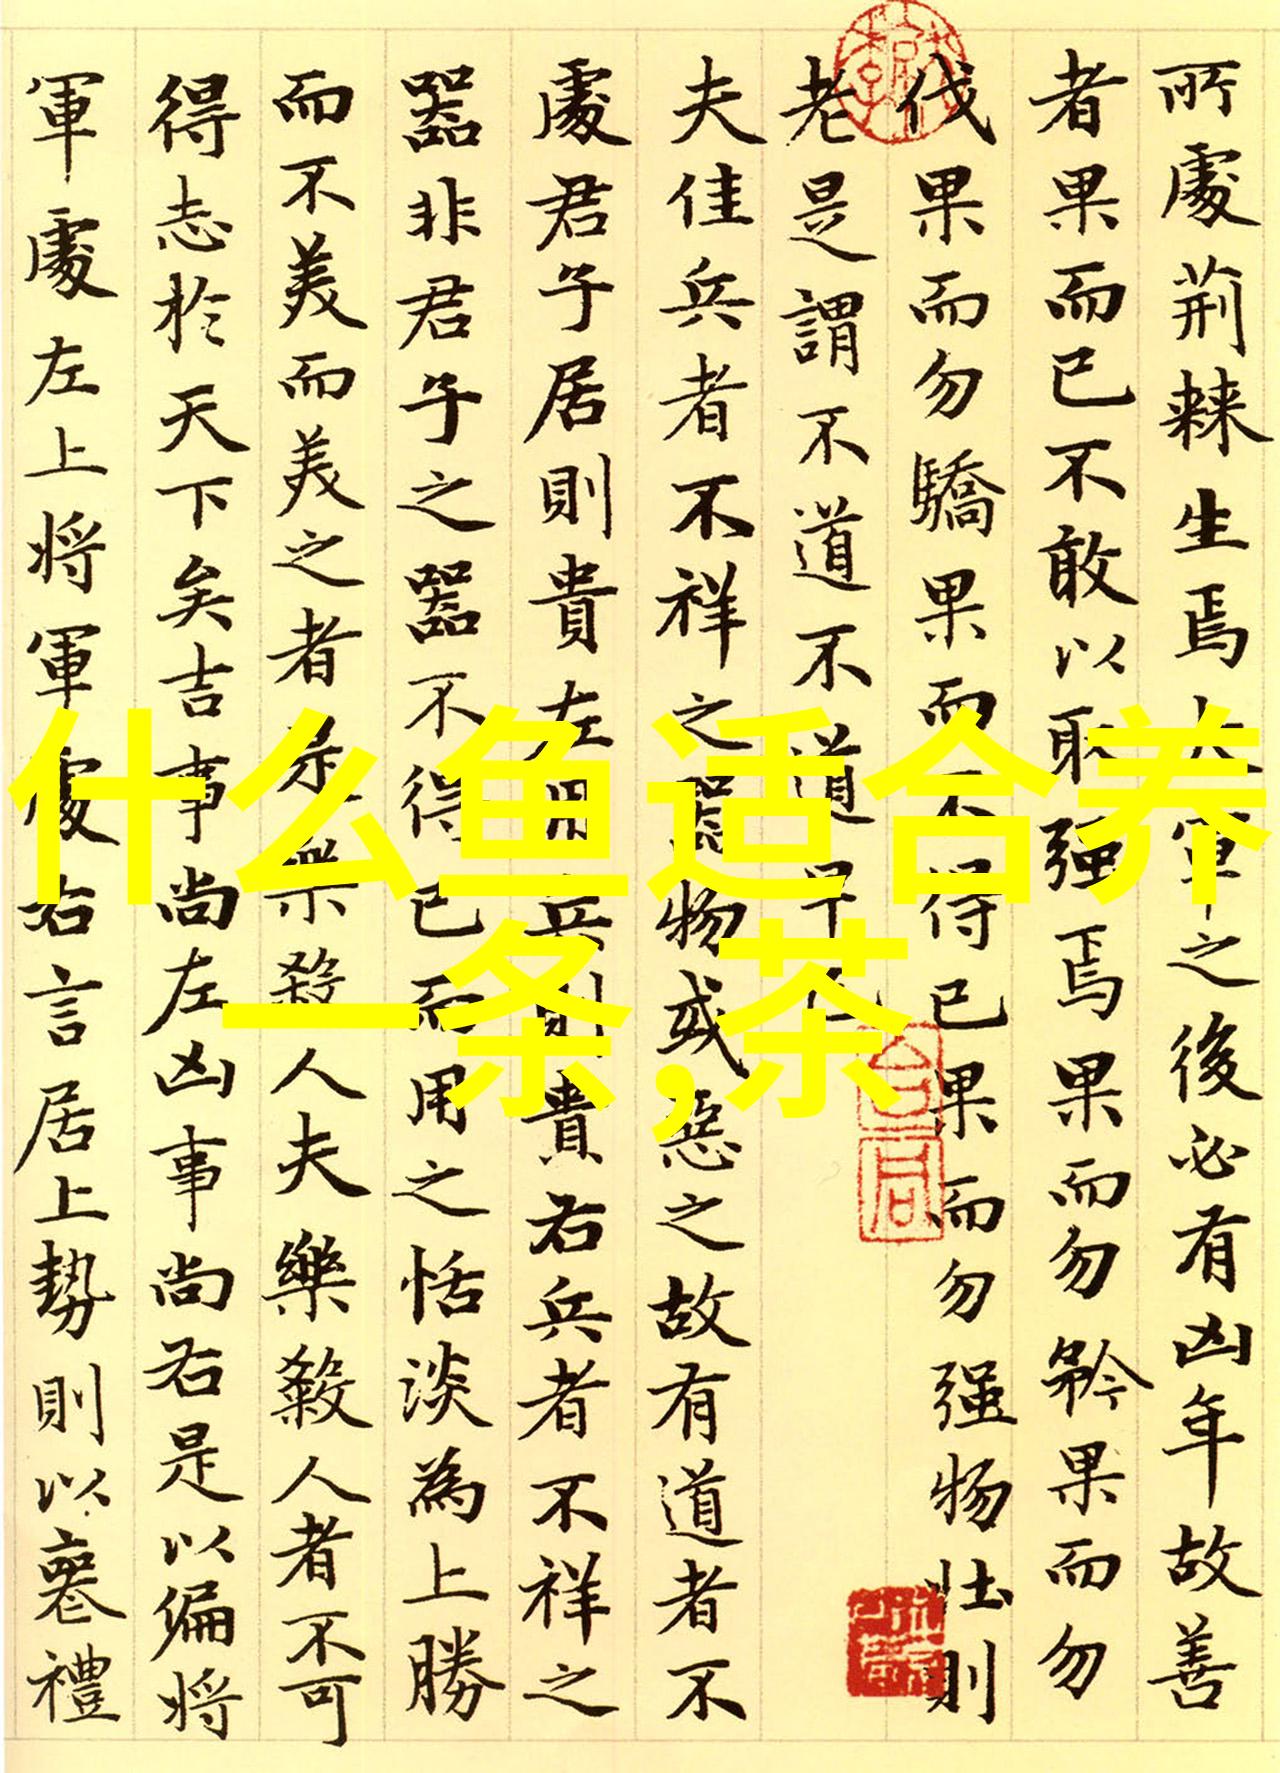 所處荆棘生焉大軍之後必有凶年故善
者果而已不敢以取强焉果而勿矜果而勿
伐果而勿驕果而不得已果而勿强物壯則
老是謂不道不道早已
夫佳兵者不祥之噐物或惡之故有道者不
處君子居則貴左用兵則貴右兵者不祥之
噐非君子之噐不得已而用之恬淡為上勝
而不美而美之者是樂殺人夫樂殺人者不可
得志於天下矣吉事尚左凶事尚右是以偏將
軍處左上將軍處右言居上勢則以喪禮
什么鱼适合养
一条,茶